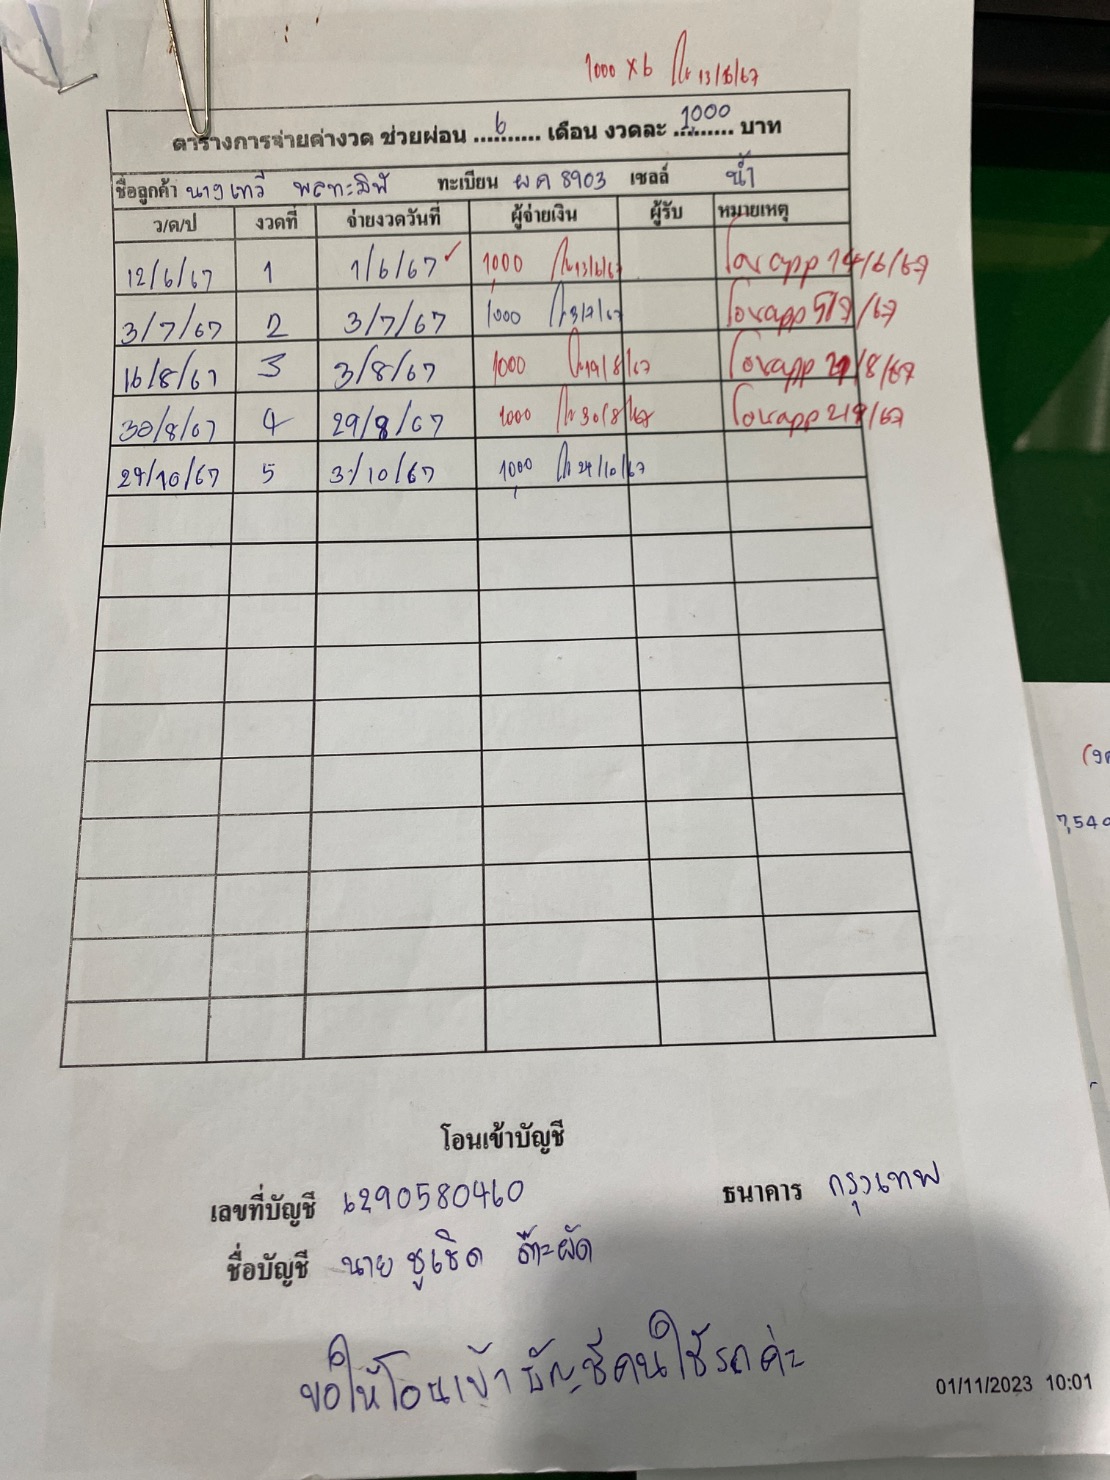 1000 x 6 13/6/67
ตารางการจ่ายค่างวด ช่วยผ่อน ....6.... เดือน งวดละ ..1000.. บาท
ชื่อลูกค้า นางเทวี ทะเบียน ผค 8903 เซลล์ น้ำ
ว/ด/ป งวดที่ จ่ายงวดวันที่ ผู้จ่ายเงิน ผู้รับ หมายเหตุ
12/6/67 1 1/6/67 ✓ 1000 13/6/67 โอน app 14/6/67
3/7/67 2 3/7/67 1000 3/7/67 โอน app 5/7/67
16/8/67 3 3/8/67 1000 19/8/67 โอน app /8/67
30/8/67 4 29/8/67 1000 30/8/67 โอน app
24/10/67 5 3/10/67 1000 24/10/67
(งค
7,540
โอนเข้าบัญชี
เลขที่บัญชี 6290580460 ธนาคาร กรุงเทพ
ชื่อบัญชี นาย ชูเชิด ต๊ะผัด
ขอให้โอนเข้าบัญชีคนใช้รถค่ะ
01/11/2023 10:01